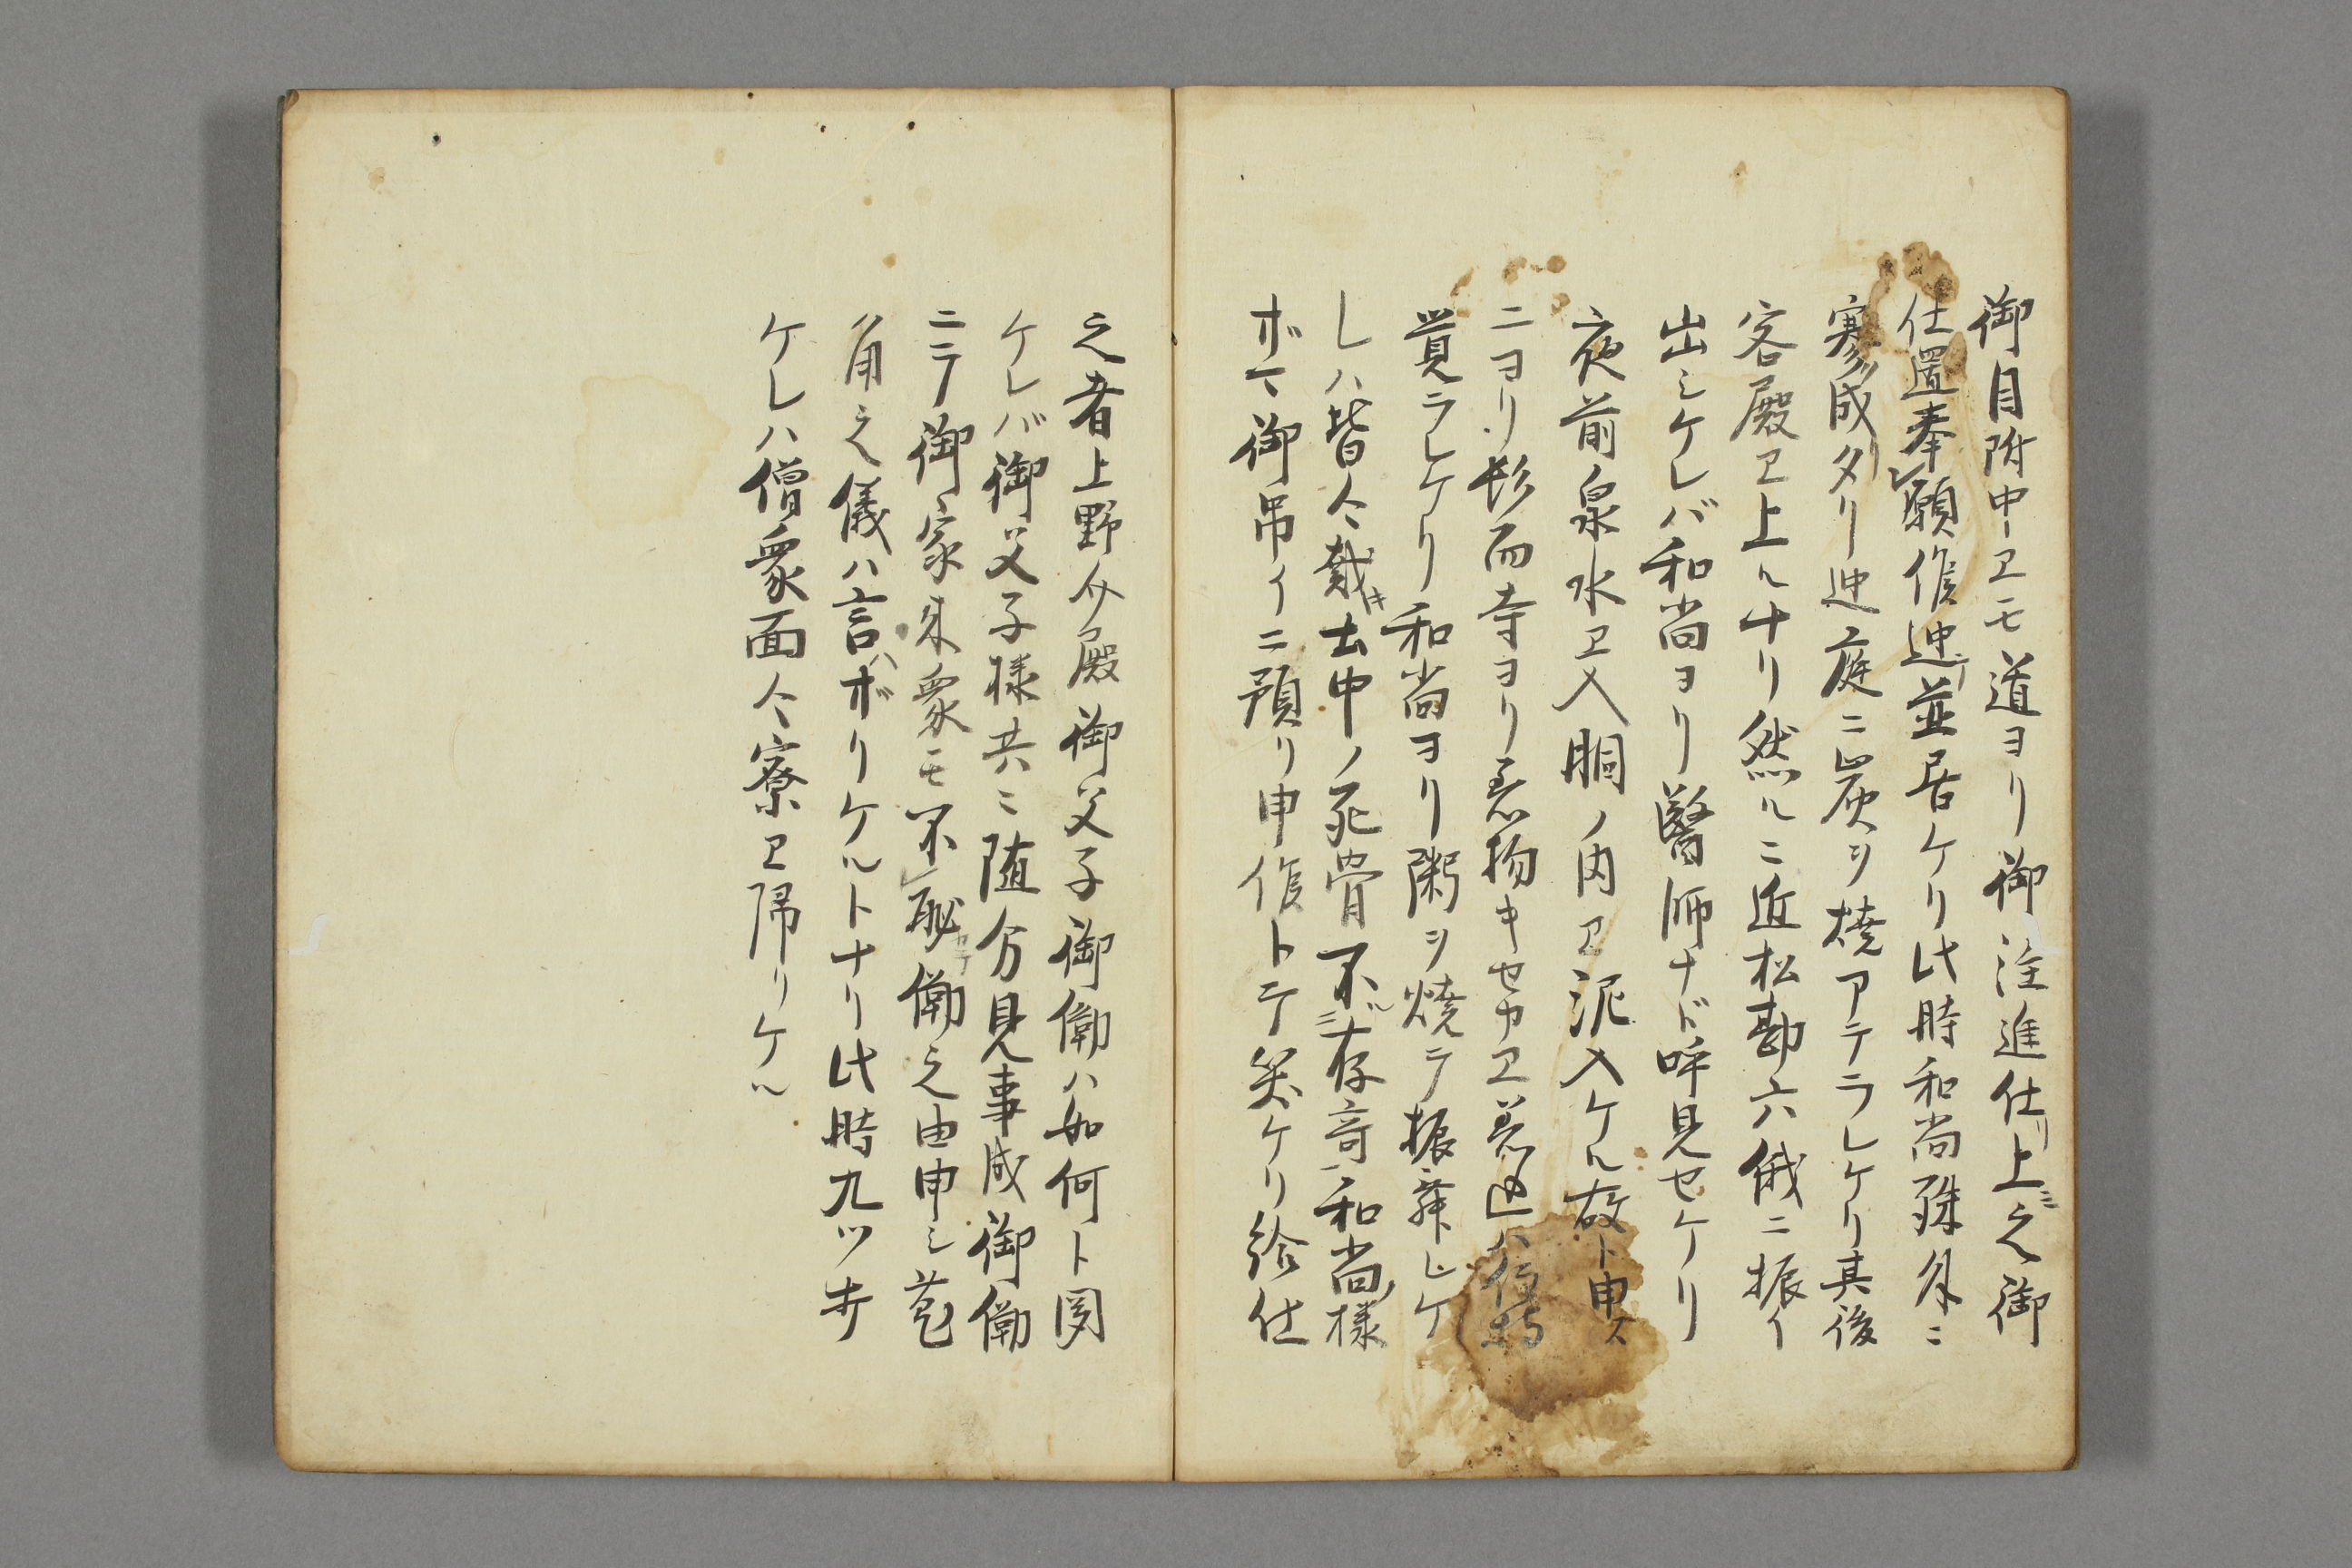 御目附中エモ道ヨリ御注進仕リ上ミ之御
仕置奉レ願候迚ニテ並居ケリ此時和尚殊外ニ
寒ク成タリ迚庭ニ炭ヲ焼アテラレケリ其後
客殿エ上ルナリ然ルニ近松勘六俄ニ振イ
出シケレバ和尚ヨリ醫師ナド呼見セケリ
夜前泉水エ入胴ノ内エ泥入ケル故ト申ス
ニヨリ於而寺ヨリ着物キセカエ着
覚ラレケリ和尚ヨリ粥ヲ焼テ振舞レケ
レハ皆人戴キ士中ノ死骨不ル存ニ寄ニ和尚様
ボヤ御吊イニ預リ申候トテ笑ケリ給仕
之者上野介殿御父子御働ハ如何ト問
ケレバ御父子様共ニ随分見事成御働
ニテ御家来衆モ不レ恥働之由申シ
角之儀ハ言ハボリケルトナリ此時九ツ
ケレハ僧衆面人寮エ帰リケル